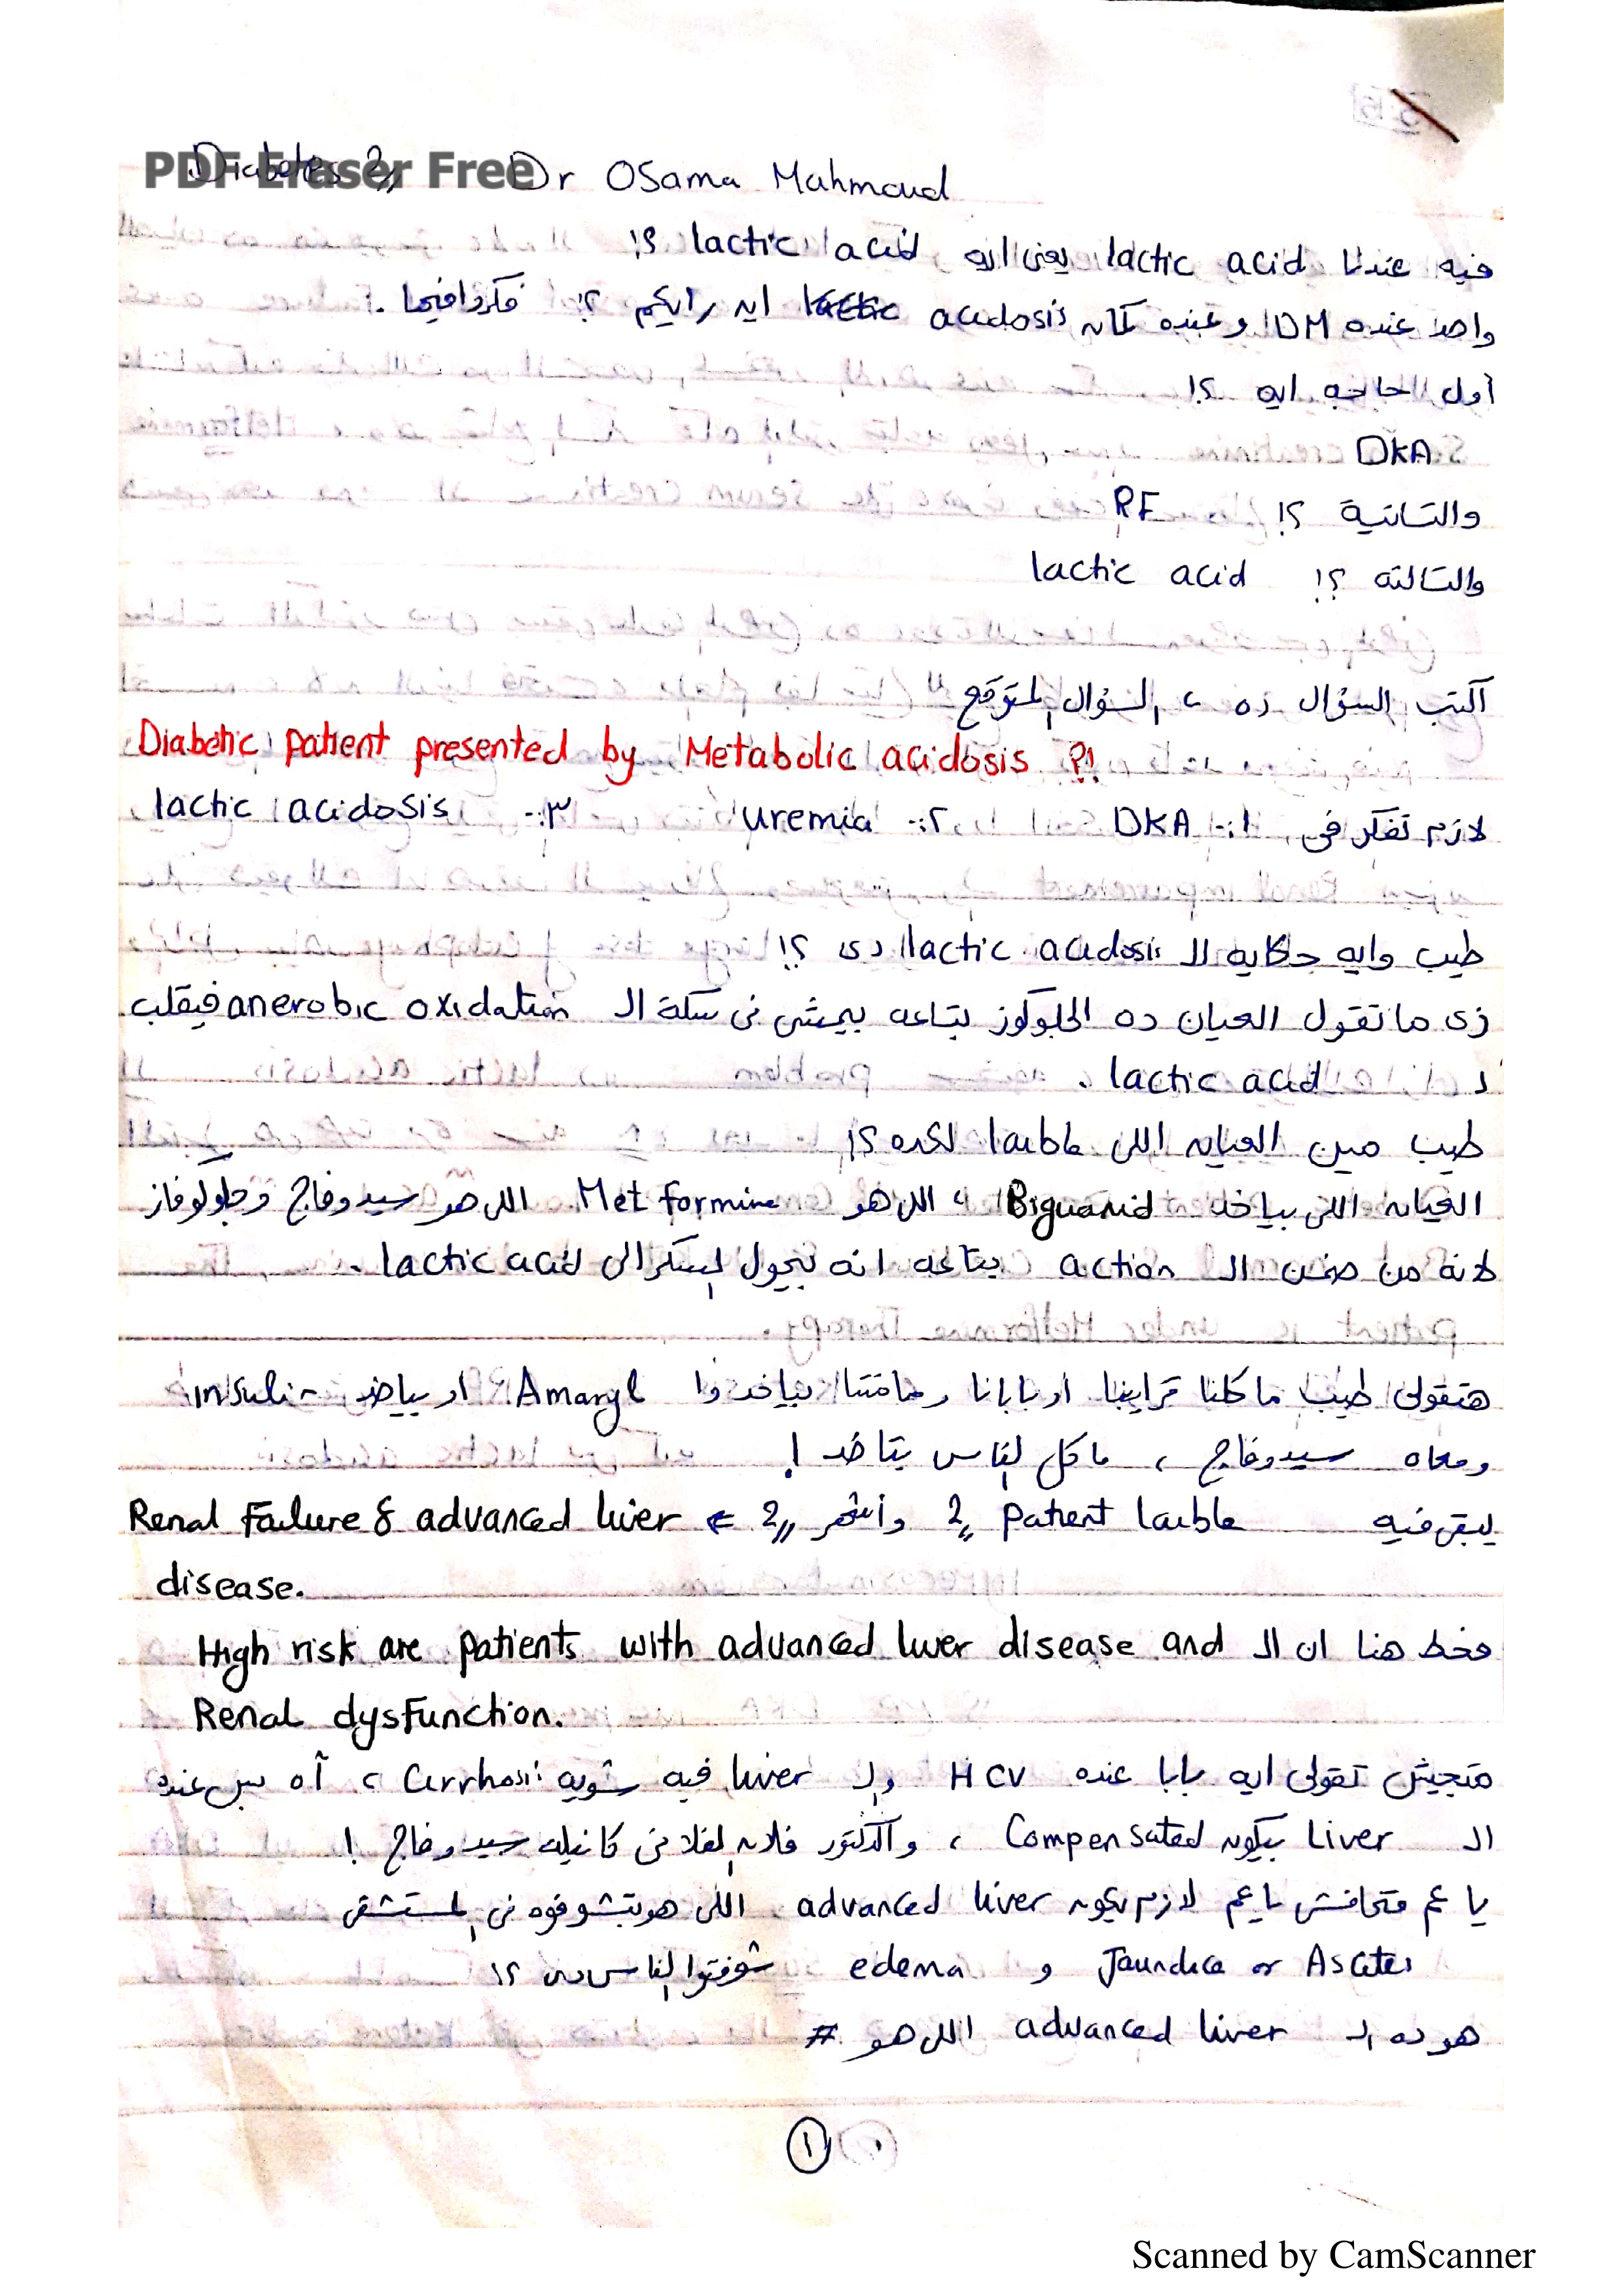 PDF Eraser Free
Diabetes 2,, Dr OSama Mahmoud
فيه عندنا lactic acid يعنى ايه lactic acid ؟!
واحد عنده DM وعنده كمان acidosis ايه رايكم ؟! فكروا فيها .
أول حاجه ايه ؟!
DKA
والتانية ؟! RF
والتالته ؟! lactic acid
اكتب السؤال ده ، السؤال المتوقع "
Diabetic patient presented by Metabolic acidosis ؟!
لازم تفكر فى ١:- DKA ٢:- uremia ٣:- lactic acidosis
طيب وايه حكايه الـ lactic acidosis دى ؟!
زى ما تقول العيان ده الجلوكوز بتاعه بيمشى فى سكة الـ anerobic oxidation فيقلب
لـ lactic acid .
طيب مين العيان اللى liable لكده ؟!
العيان اللى بياخد Biguanid ، اللى هو Metformine اللى هو سيدوفاج وجلوكوفاز
لانه من ضمن الـ action بتاعه انه بيحول السكر الى lactic acid .
هتقولى طيب ما كلنا قرايبنا او بابانا ومامتنا بياخدوا Amaryl او بياخد insulin
ومعاه سيدوفاج ، ما كل الناس بتاخد !
يبقى فيه 2,, patient liable وأشهر 2,, ← Renal Failure & advanced liver
disease.
فخط هنا ان الـ High risk are patients with advanced liver disease and
Renal dysfunction.
متجيش تقولى ايه بابا عنده HCV والـ liver فيه شويه cirrhosis ، آه بس عنده
الـ Liver بيكون Compensated ، والدكتور فلان الفلانى كاتبله سيدوفاج !
يا عم متخافش يا عم لازم يكون advanced liver اللى هو بتشوفوه فى المستشفى
Jaundice or Ascites و edema شوفتوا الناس دى ؟!
هو ده الـ advanced liver اللى هو #
١
Scanned by CamScanner